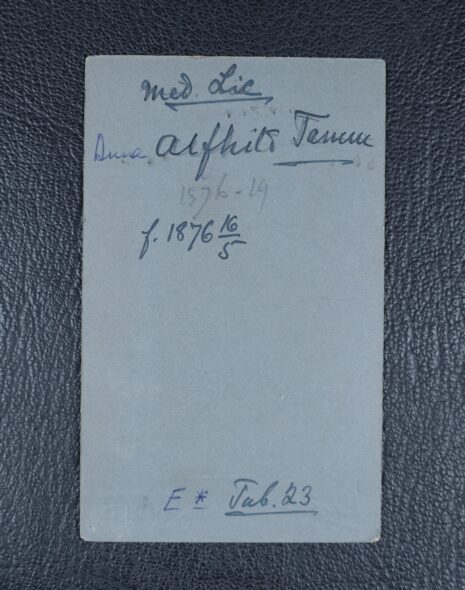 Med. Lic
Anna Alfhild Tamm
1876-19
f. 1876 16/5
E * Tab. 23